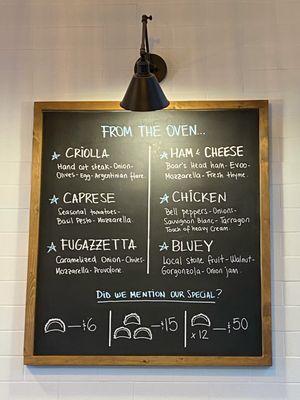 FROM THE OVEN...
CRIOLLA
Hand cut steak-Onion-
Olives-Egg-Argentinian flare.
CAPRESE
Seasonal tomatoes-
Basil Pesto-Mozzarella.
FUGAZZETTA
Caramelized Onion-Chives-
Mozzarella-Provolone.
HAM & CHEESE
Boar's Head ham-Evoo-
Mozzarella-Fresh thyme.
CHICKEN
Bell peppers-Onions-
Sauvignon Blanc-Tarragon
Touch of heavy Cream.
BLUEY
Local stone fruit-Walnut-
Gorgonzola-Onion jam.
DID WE MENTION OUR SPECIAL?
—$6
—$15
x12 —$50